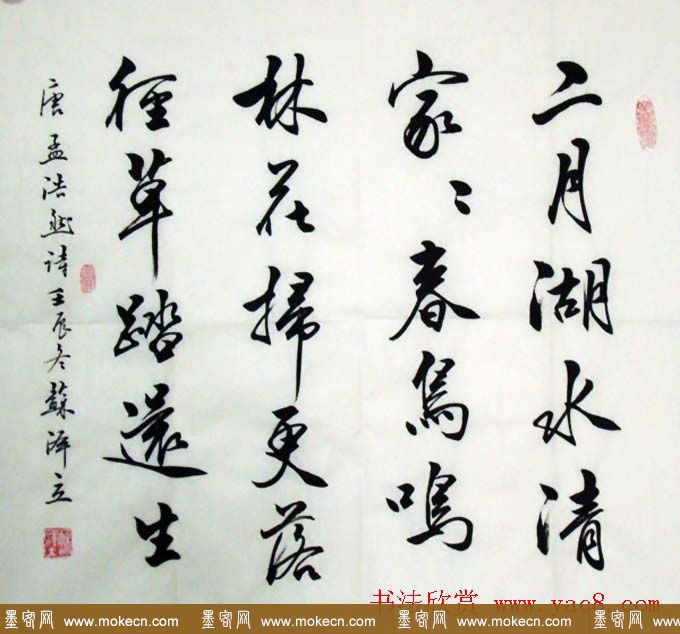 二月湖水清
家〻春鳥鳴
林花掃更落
徑草踏還生
唐孟浩然詩壬辰冬蘇澤立
书法欣赏 www.yac8.com
墨客网 www.mokecn.com 墨客网 www.mokecn.com 墨客网 www.mokecn.com 墨客网 www.mokecn.com